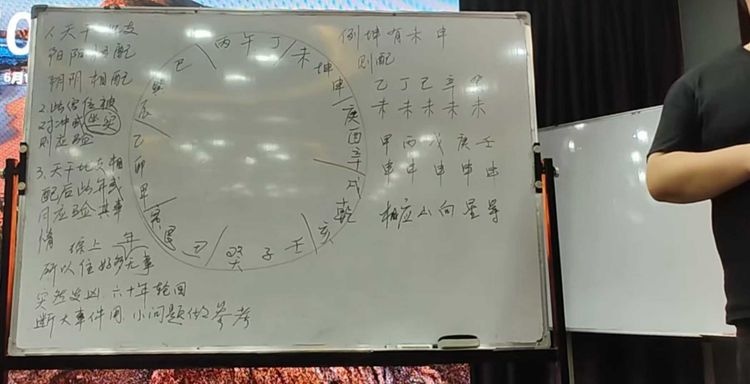 1.天干
阳阳相配
阴阴相配
2.此宫位被
对冲或坐实
则应验
3.天干地支相
配后此年或
月应验其事
情 综上 年
所以住好多无事
突然发凶 六十年轮回
断大事件用 小问题做参考
丙午丁
未坤申
庚酉辛
戌乾亥
壬子癸
丑艮寅
甲卯乙
辰巽巳
例坤有未申
则配
乙丁己辛
未未未未未
甲丙戊庚壬
申申申申申
相应山向星等
6月1